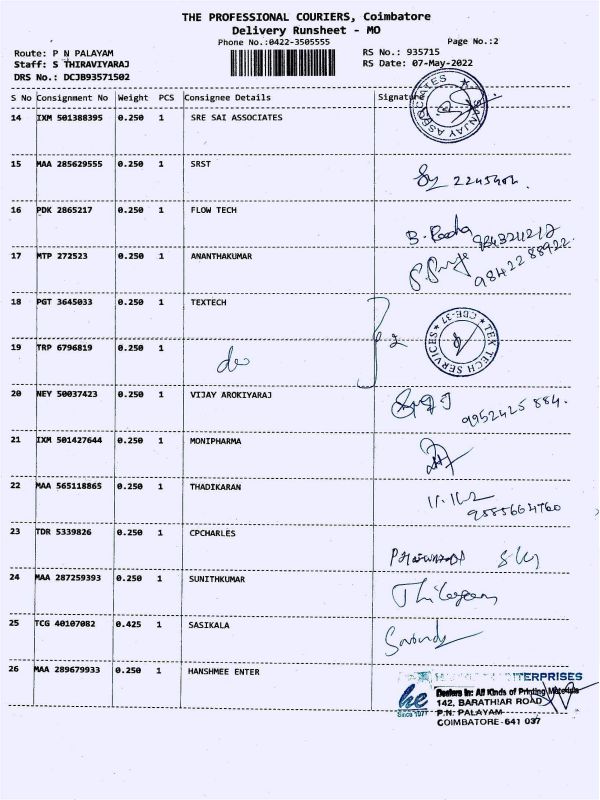 THE PROFESSIONAL COURIERS, Coimbatore
Delivery Runsheet - MO
Phone No.:0422-3505555 Page No.:2
Route: P N PALAYAM RS No.: 935715
Staff: S THIRAVIYARAJ RS Date: 07-May-2022
DRS No.: DCJB93571502
S No Consignment No Weight PCS Consignee Details Signature
14 IXM 501388395 0.250 1 SRE SAI ASSOCIATES
15 MAA 285629555 0.250 1 SRST
16 PDK 2865217 0.250 1 FLOW TECH
17 MTP 272523 0.250 1 ANANTHAKUMAR
9842288922
18 PGT 3645033 0.250 1 TEXTECH
TEX TECH SERVICES CBE-37
19 TRP 6796819 0.250 1 do 2
20 NEY 50037423 0.250 1 VIJAY AROKIYARAJ
9952425 884.
21 IXM 501427644 0.250 1 MONIPHARMA
22 MAA 565118865 0.250 1 THADIKARAN
9585664760
23 TDR 5339826 0.250 1 CPCHARLES
24 MAA 287259393 0.250 1 SUNITHKUMAR
25 TCG 40107082 0.425 1 SASIKALA
26 MAA 289679933 0.250 1 HANSHMEE ENTER
ENTERPRISES
he Since 1977
Dealers in: All Kinds of Printing Materials
142, BARATHIAR ROAD
P.N. PALAYAM
COIMBATORE-641 037